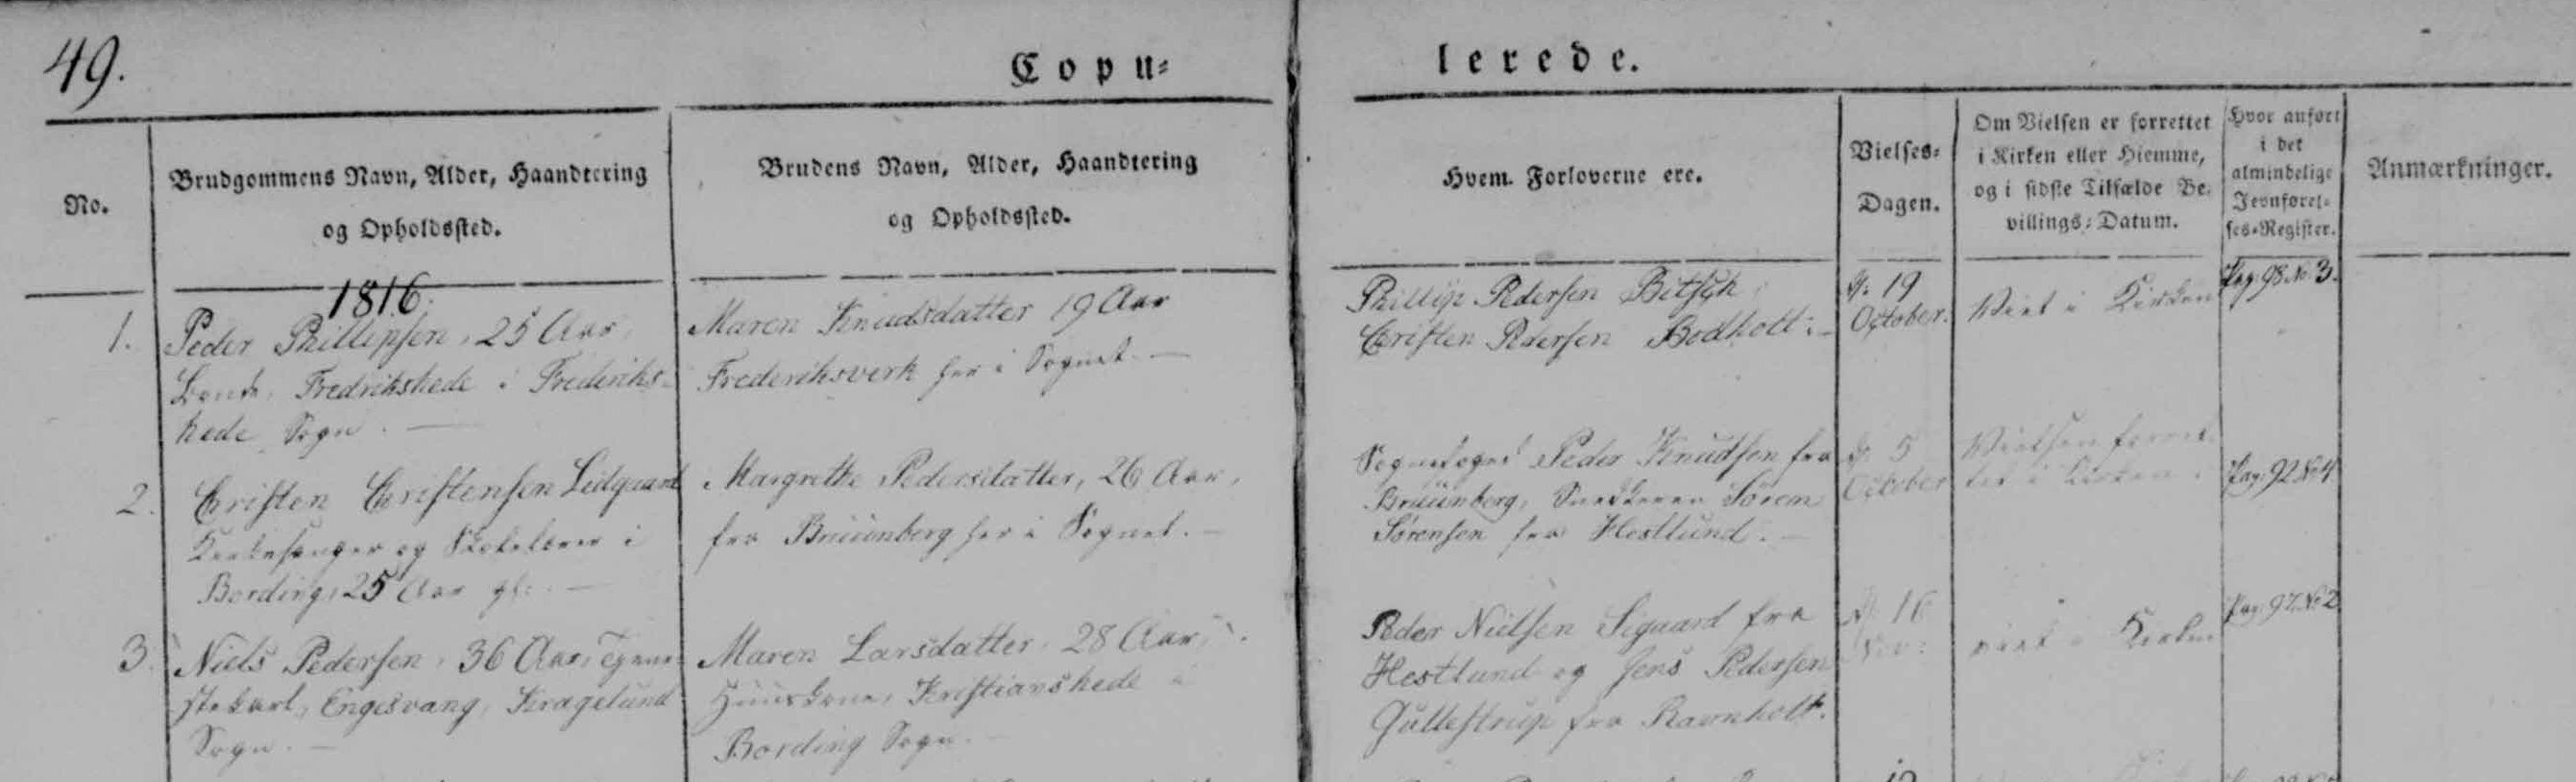 49.
Copu=
lerede.
No.
Brudgommens Navn, Alder, Haandtering
og Opholdssted.
Brudens Navn, Alder, Haandtering
og Opholdssted.
Hvem Forloverne ere.
Vielses=
Dagen.
Om Vielsen er forrettet
i Kirken eller Hiemme,
og i sidste Tilfælde Be=
villings=Datum.
Hvor anført
i det
almindelige
Jevnførel=
ses=Register.
Anmærkninger.
1816.
1.
Peder Phillipsen, 25 Aar,
Bonde, Fredrikshede i Frederiks=
hede Sogn. —
Maren Knudsdatter 19 Aar
Frederiksverk her i Sognet. —
Phillip Pedersen Bitsch
Christen Pedersen Bodholt. —
19
October.
Viet i Kirken
Pag. 98. No 3.
2.
Christen Christensen Lidgaard
Kirkesanger og Skolelærer i
Bording, 25 Aar gl. —
Margrethe Pedersdatter, 26 Aar,
fra Bruunberg her i Sognet. —
Sognefoged Peder Knudsen fra
Bruunberg, Snedkeren Sörem
Sörensen fra Hestlund. —
5
October
Vielsen forret=
tet i Kirken.
Pag. 92 No 4
3.
Niels Pedersen, 36 Aar, Tjene=
stekarl, Engesvang, Kragelund
Sogn. —
Maren Larsdatter, 28 Aar,
Huuskone, Kristianshede i
Bording Sogn. —
Peder Nielsen Sigaard fra
Hestlund og Jens Pedersen
Gullestrup fra Ravnholt.
16
Nov:
viet i Kirken
Pag. 97. No 2